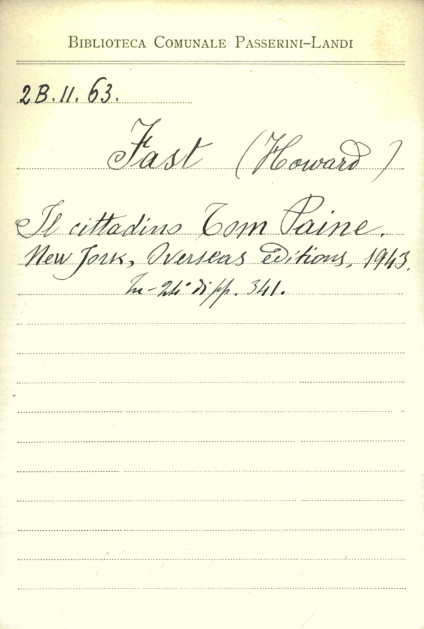 BIBLIOTECA COMUNALE PASSERINI-LANDI
2B.II.63.
Fast (Howard)
Il cittadino Tom Paine.
New York, Overseas editions, 1943.
In-24° di pp. 341.